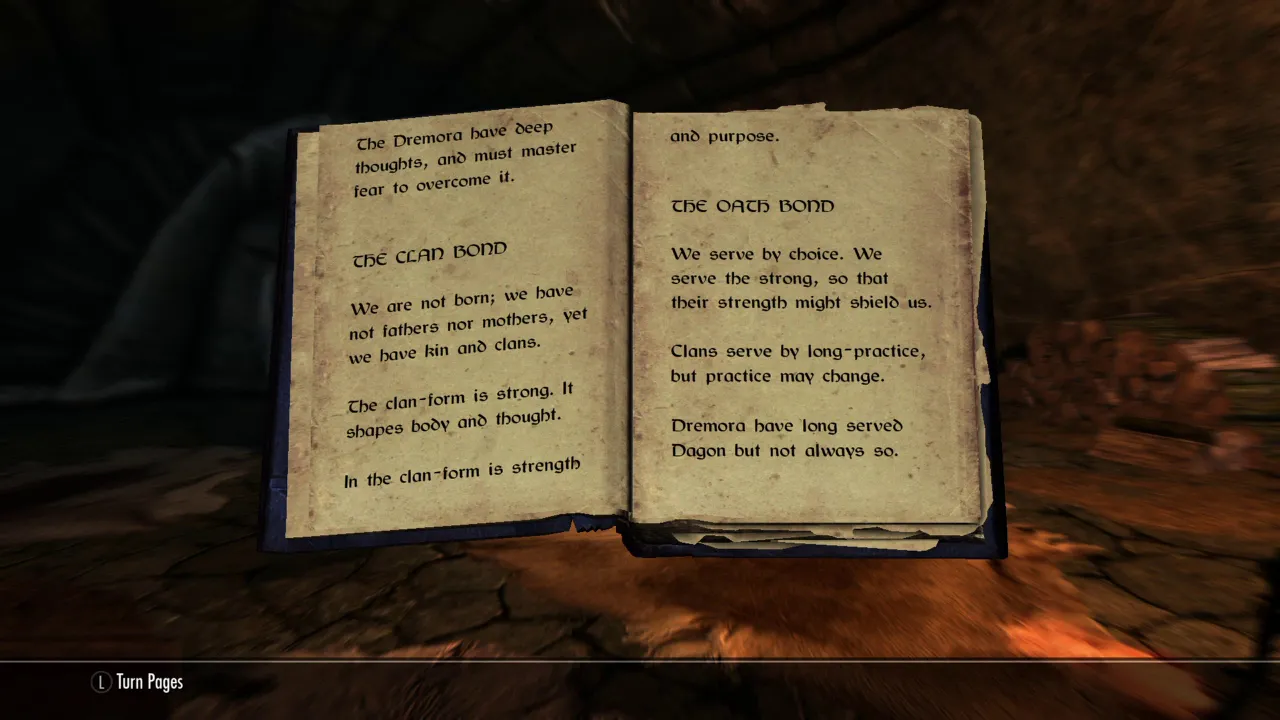 The Dremora have deep
thoughts, and must master
fear to overcome it.
THE CLAN BOND
We are not born; we have
not fathers nor mothers, yet
we have kin and clans.
The clan-form is strong. It
shapes body and thought.
In the clan-form is strength
and purpose.
THE OATH BOND
We serve by choice. We
serve the strong, so that
their strength might shield us.
Clans serve by long-practice,
but practice may change.
Dremora have long served
Dagon but not always so.
L Turn Pages